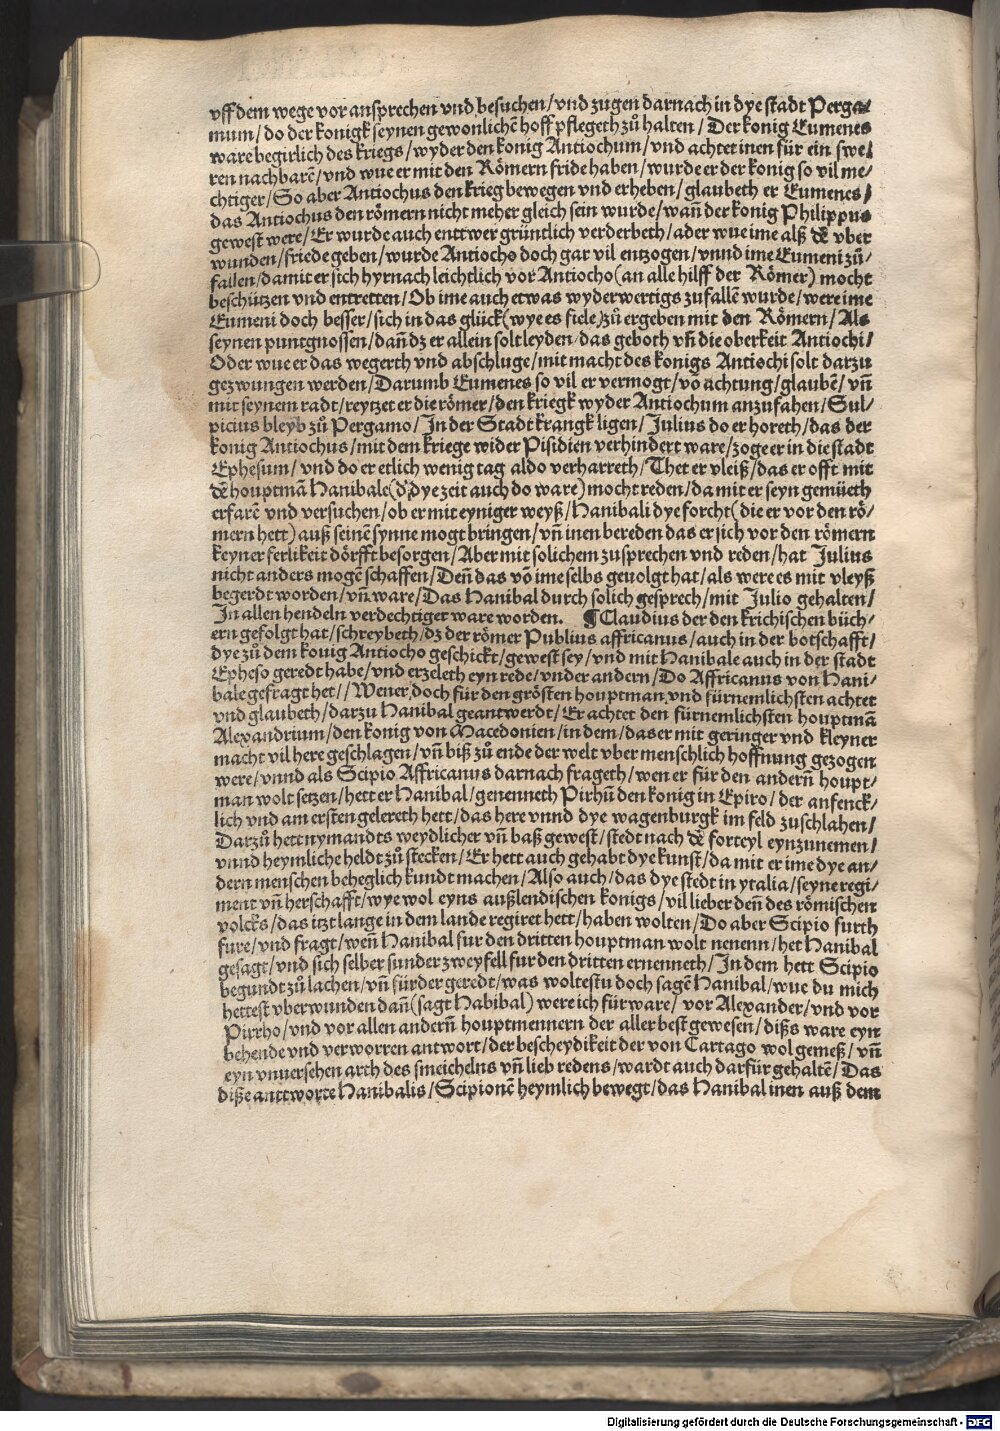 vff dem wege vor ansprechen vnd besuchen/vnd zugen darnach in dye stadt Perga⸗
mum/do der konigk seynen gewonlichē hoff pflegeth zů halten/Der konig Eumenes
ware begirlich des kriegs/wyder den konig Antiochum/vnd achtet inen für ein swe/
ren nachbarē/vnd wue er mit den Römern fride haben/wurde er der konig so vil me/
chtiger/So aber Antiochus den krieg bewegen vnd erheben/glaubeth er Eumenes/
das Antiochus den römern nicht meher gleich sein wurde/wañ der konig Philippus
gewest were/Er wurde auch enttwer gründtlich verderbeth/ader wue ime alß dē vber
wunden/friede geben/wurde Antiocho doch gar vil entzogen/vnnd ime Eumeni zů/
fallen/damit er sich hyrnach leichtlich vor Antiocho(an alle hilff der Römer) mocht
beschützen vnd entretten/Ob ime auch etwas wyderwertigs zufallē wurde/were ime
Eumeni doch besser/sich in das glück(wye es fiele)zů ergeben mit den Römern/Als
seynen puntgnossen/dañ dz er allein solt leyden/das geboth vñ die oberkeit Antiochi/
Oder wue er das wegerth vnd abschluge/mit macht des konigs Antiochi solt darzu
gezwungen werden/Darumb Eumenes so vil er vermogt/vō achtung/glaubē/vñ
mit seynem radt/reytzet er die römer/den kriegk wyder Antiochum anzufahen/Sul⸗
picius bleyb zů Pergamo/In der Stadt krangk ligen/Julius do er horeth/das der
konig Antiochus/mit dem kriege wider Pisidien verhindert ware/zoge er in die stadt
Ephesum/vnd do er etlich wenig tag aldo verharreth/Thet er vleiß/das er offt mit
dē houptmā Hanibale(d' dye zeit auch do ware)mocht reden/da mit er seyn gemüeth
erfarē vnd versuchen/ob er mit eyniger weyß/Hanibali dye forcht(die er vor den rö/
mern hett)auß seinē synne mogt bringen/vñ inen bereden das er sich vor den römern
keyner ferlikeit dörfft besorgen/Aber mit solichem zusprechen vnd reden/hat Julius
nicht anders mogē schaffen/Deñ das vō ime selbs geuolgt hat/als were es mit vleyß
begerdt worden/vñ ware/Das Hanibal durch solich gesprech/mit Julio gehalten/
In allen hendeln verdechtiger ware worden. ¶Claudius der den krichischen büch⸗
ern gefolgt hat/schreybeth/dz der römer Publius affricanus/auch in der botschafft/
dye zů dem konig Antiocho geschickt/gewest sey/vnd mit Hanibale auch in der stadt
Epheso geredt habe/vnd erzeleth eyn rede/vnder andern/Do Affricanus von Hani⸗
bale gefragt het//Wener doch für den grösten houptman vnd fürnemlichsten achtet
vnd glaubeth/darzu Hanibal geantwerdt/Er achtet den fürnemlichsten houptmā
Alexandrium/den konig von Macedonien/in dem/das er mit geringer vnd kleyner
macht vil here geschlagen/vñ biß zů ende der welt vber menschlich hoffnung gezogen
were/vnnd als Scipio Affricanus darnach frageth/wen er für den andern̄ houpt/
man wolt setzen/hett er Hanibal/genenneth Pirhū den konig in Epiro/der anfenck/
lich vnd am ersten gelereth hett/das here vnnd dye wagenburgk im feld zuschlahen/
Darzů hett nymandts weydlicher vñ baß gewest/stedt nach dē forteyl eynzunemen/
vnnd heymliche heldt zů stecken/Er hett auch gehabt dye kunst/da mit er ime dye an/
dern menschen beheglich kundt machen/Also auch/das dye stedt in ytalia/seyne regi/
ment vñ herschafft/wye wol eyns außlendischen konigs/vil lieber deñ des römischen
volcks/das itzt lange in dem lande regiret hett/haben wolten/Do aber Scipio furth
fure/vnd fragt/weñ Hanibal fur den dritten houptman wolt nenenn/het Hanibal
gesagt/vnd sich selber sunder zweyfell fur den dritten ernenneth/In dem hett Scipio
begundt zů lachen/vñ fürder geredt/was woltestu doch sagē Hanibal/wue du mich
hettest vberwunden dañ(sagt Habibal) were ich für ware/vor Alexander/vnd vor
Pirrho/vnd vor allen andern̄ houptmennern der aller best gewesen/dißs ware eyn
behende vnd verworren antwort/der bescheydikeit der von Cartago wol gemeß/vñ
eyn vnuersehen arth des smeichelns vñ lieb redens/wardt auch darfür gehaltē/Das
diße anttworte Hanibalis/Scipionē heymlich bewegt/das Hanibal inen auß dem
Digitalisierung gefördert durch die Deutsche Forschungsgemeinschaft - DFG